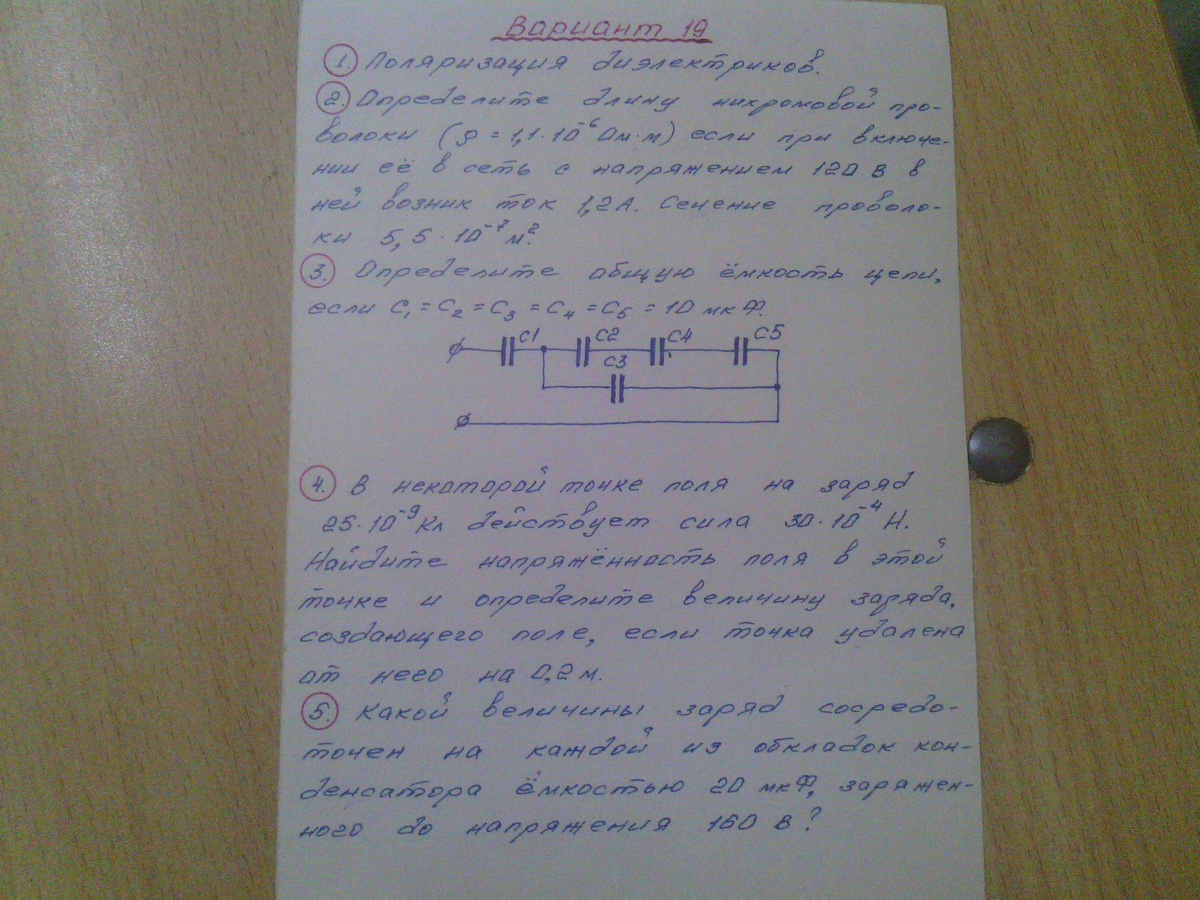 Вариант 19
1. Поляризация диэлектриков.
2. Определите длину нихромовой про-
волоки (ρ = 1,1·10⁻⁶ Ом·м) если при включе-
нии её в сеть с напряжением 120 В в
ней возник ток 1,2А. Сечение проволо-
ки 5,5·10⁻⁷ м².
3. Определите общую ёмкость цепи,
если C₁ = C₂ = C₃ = C₄ = C₅ = 10 мкФ.
C1 C2 C4 C5
C3
4. В некоторой точке поля на заряд
25·10⁻⁹ Кл действует сила 30·10⁻⁴ Н.
Найдите напряжённость поля в этой
точке и определите величину заряда,
создающего поле, если точка удалена
от него на 0,2 м.
5. Какой величины заряд сосредо-
точен на каждой из обкладок кон-
денсатора ёмкостью 20 мкФ, заряжен-
ного до напряжения 160 В?